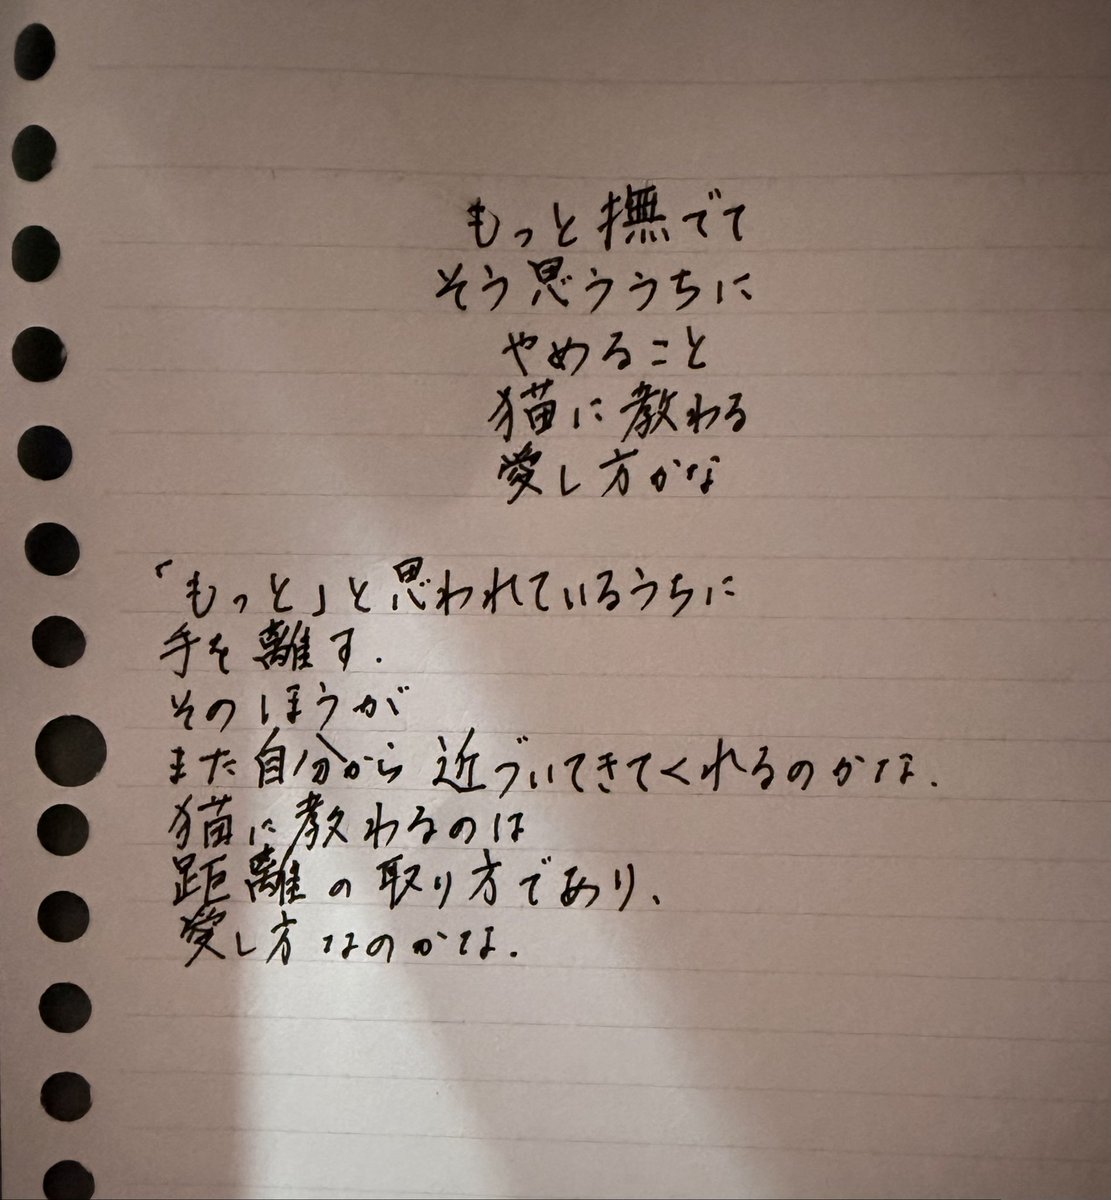 もっと撫でて
そう思ううちに
やめること
猫に教わる
愛し方かな
「もっと」と思われているうちに
手を離す.
そのほうが
また自分から近づいてきてくれるのかな.
猫に教わるのは
距離の取り方であり、
愛し方なのかな.